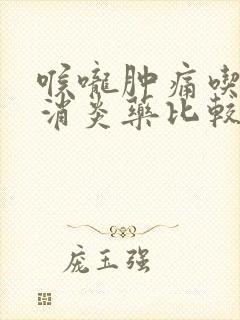 喉咙肿痛喫
消炎藥比較
庞玉强